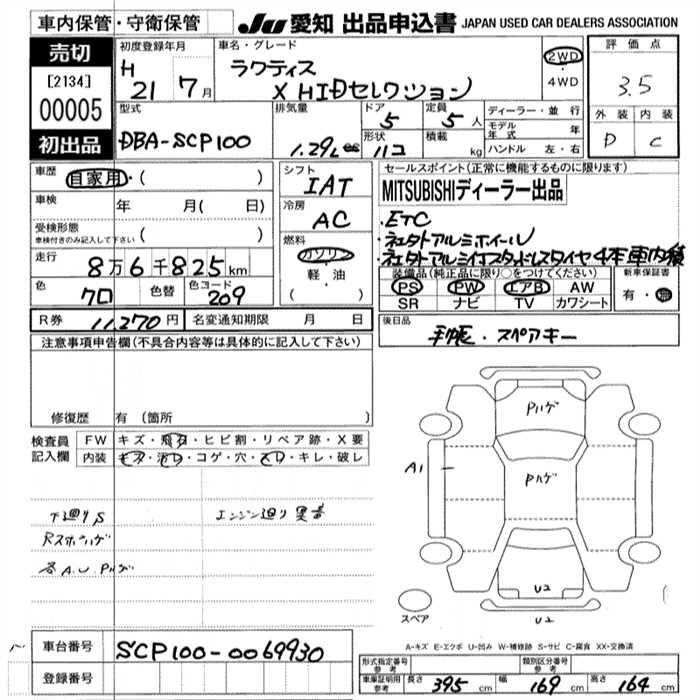 車内保管・守衛保管
JU 愛知 出品申込書 JAPAN USED CAR DEALERS ASSOCIATION
売切
[2134]
00005
初出品
初度登録年月
H 21 7月
車名・グレード
ラクティス
X HIDセレクション
2WD
・
4WD
評価点
3.5
外装 内装
D C
型式
DBA-SCP100
排気量
1.29L
ドア
5
定員
5人
形状
11コ
積載
kg
ディーラー・並行
モデル年式 年
ハンドル 左・右
車歴
自家用・( )
車検 年 月( 日)
受検形態
車検付きのみ記入して下さい ( )
走行
8万6千825km
色
クロ
色替
色コード
209
シフト
IAT
冷房
AC
燃料
ガソリン
・
軽・油
( )
R券 11,270円
名変通知期限 月 日
セールスポイント(正常に機能するものに限ります)
MITSUBISHIディーラー出品
・ETC
・社外アルミホイール
・社外アルミ付スタッドレスタイヤ4本車内積
装備品(純正品に限り○をつけてください)
PS PW エアB AW
SR ナビ TV カワシート
新車保証書
有・無
後日品
手帳・スペアキー
注意事項申告欄(不具合内容等は具体的に記入して下さい)
修復歴 有(箇所 )
検査員記入欄
FW キズ・飛石・ヒビ割・リペア跡・X要
内装 キズ・汚レ・コゲ・穴・スレ・キレ・破レ
下廻りS
エンジン廻り異音
Rスポハゲ
各A.U.Pハゲ
Pハゲ
A1
Pハゲ
U2
U2
スペア
A-キズ E-エクボ U-凹み W-補修跡 S-サビ C-腐食 XX-交換済
車台番号 SCP100-0069930
登録番号
形式指定番号 参考
類別区分番号 参考
車庫証明用 参考 長さ 395cm 幅 169cm 高さ 164cm